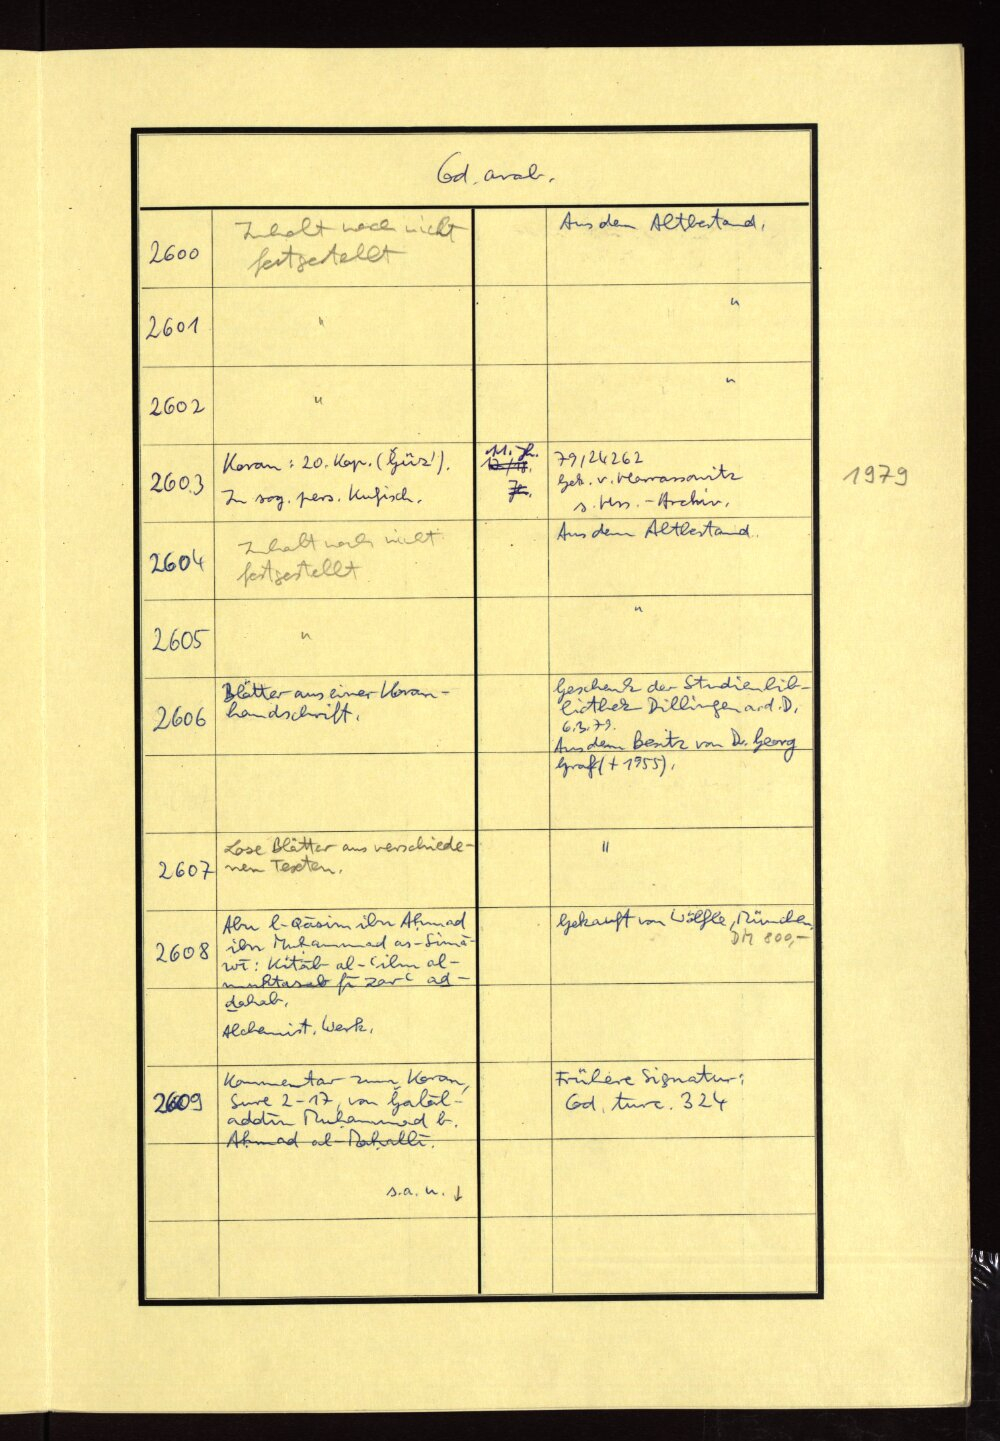 Cod. arab.
2600
Inhalt noch nicht
festgestellt
Aus dem Altbestand.
2601
"
"
2602
"
"
2603
Koran: 20. Kap. (Ǧüz').
In sog. pers. Kufisch.
11. Jh.
Jh.
79/24262
Gek. v. Harrassowitz
s. Hss.-Archiv.
1979
2604
Inhalt noch nicht
festgestellt
Aus dem Altbestand.
2605
"
"
2606
Blätter aus einer Koran-
handschrift.
Geschenk der Studienbib-
liothek Dillingen a.d.D.
6.3.79.
Aus dem Besitz von Dr. Georg
Graf (+ 1955).
2607
Lose Blätter aus verschiede-
nen Texten.
"
2608
Abu l-Qāsim ibn Aḥmad
ibn Muḥammad as-Simā-
wī: Kitāb al-ʿilm al-
muktasab fī zarʿ aḏ-
ḏahab.
Alchemist. Werk.
Gekauft von Wölfle, München.
DM 800,-
2609
Kommentar zum Koran,
Sure 2-17, von Ǧalāl-
addīn Muḥammad b.
Aḥmad al-Maḥallī.
s.a.u. ↓
Frühere Signatur:
Cod. turc. 324